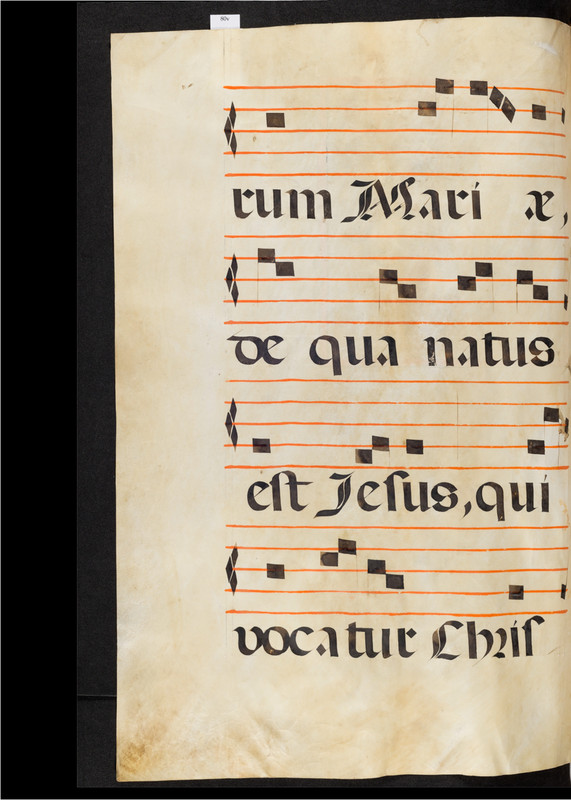 90v
rum Mari æ,
de qua natus
eſt Jeſus, qui
vocatur Chriſ